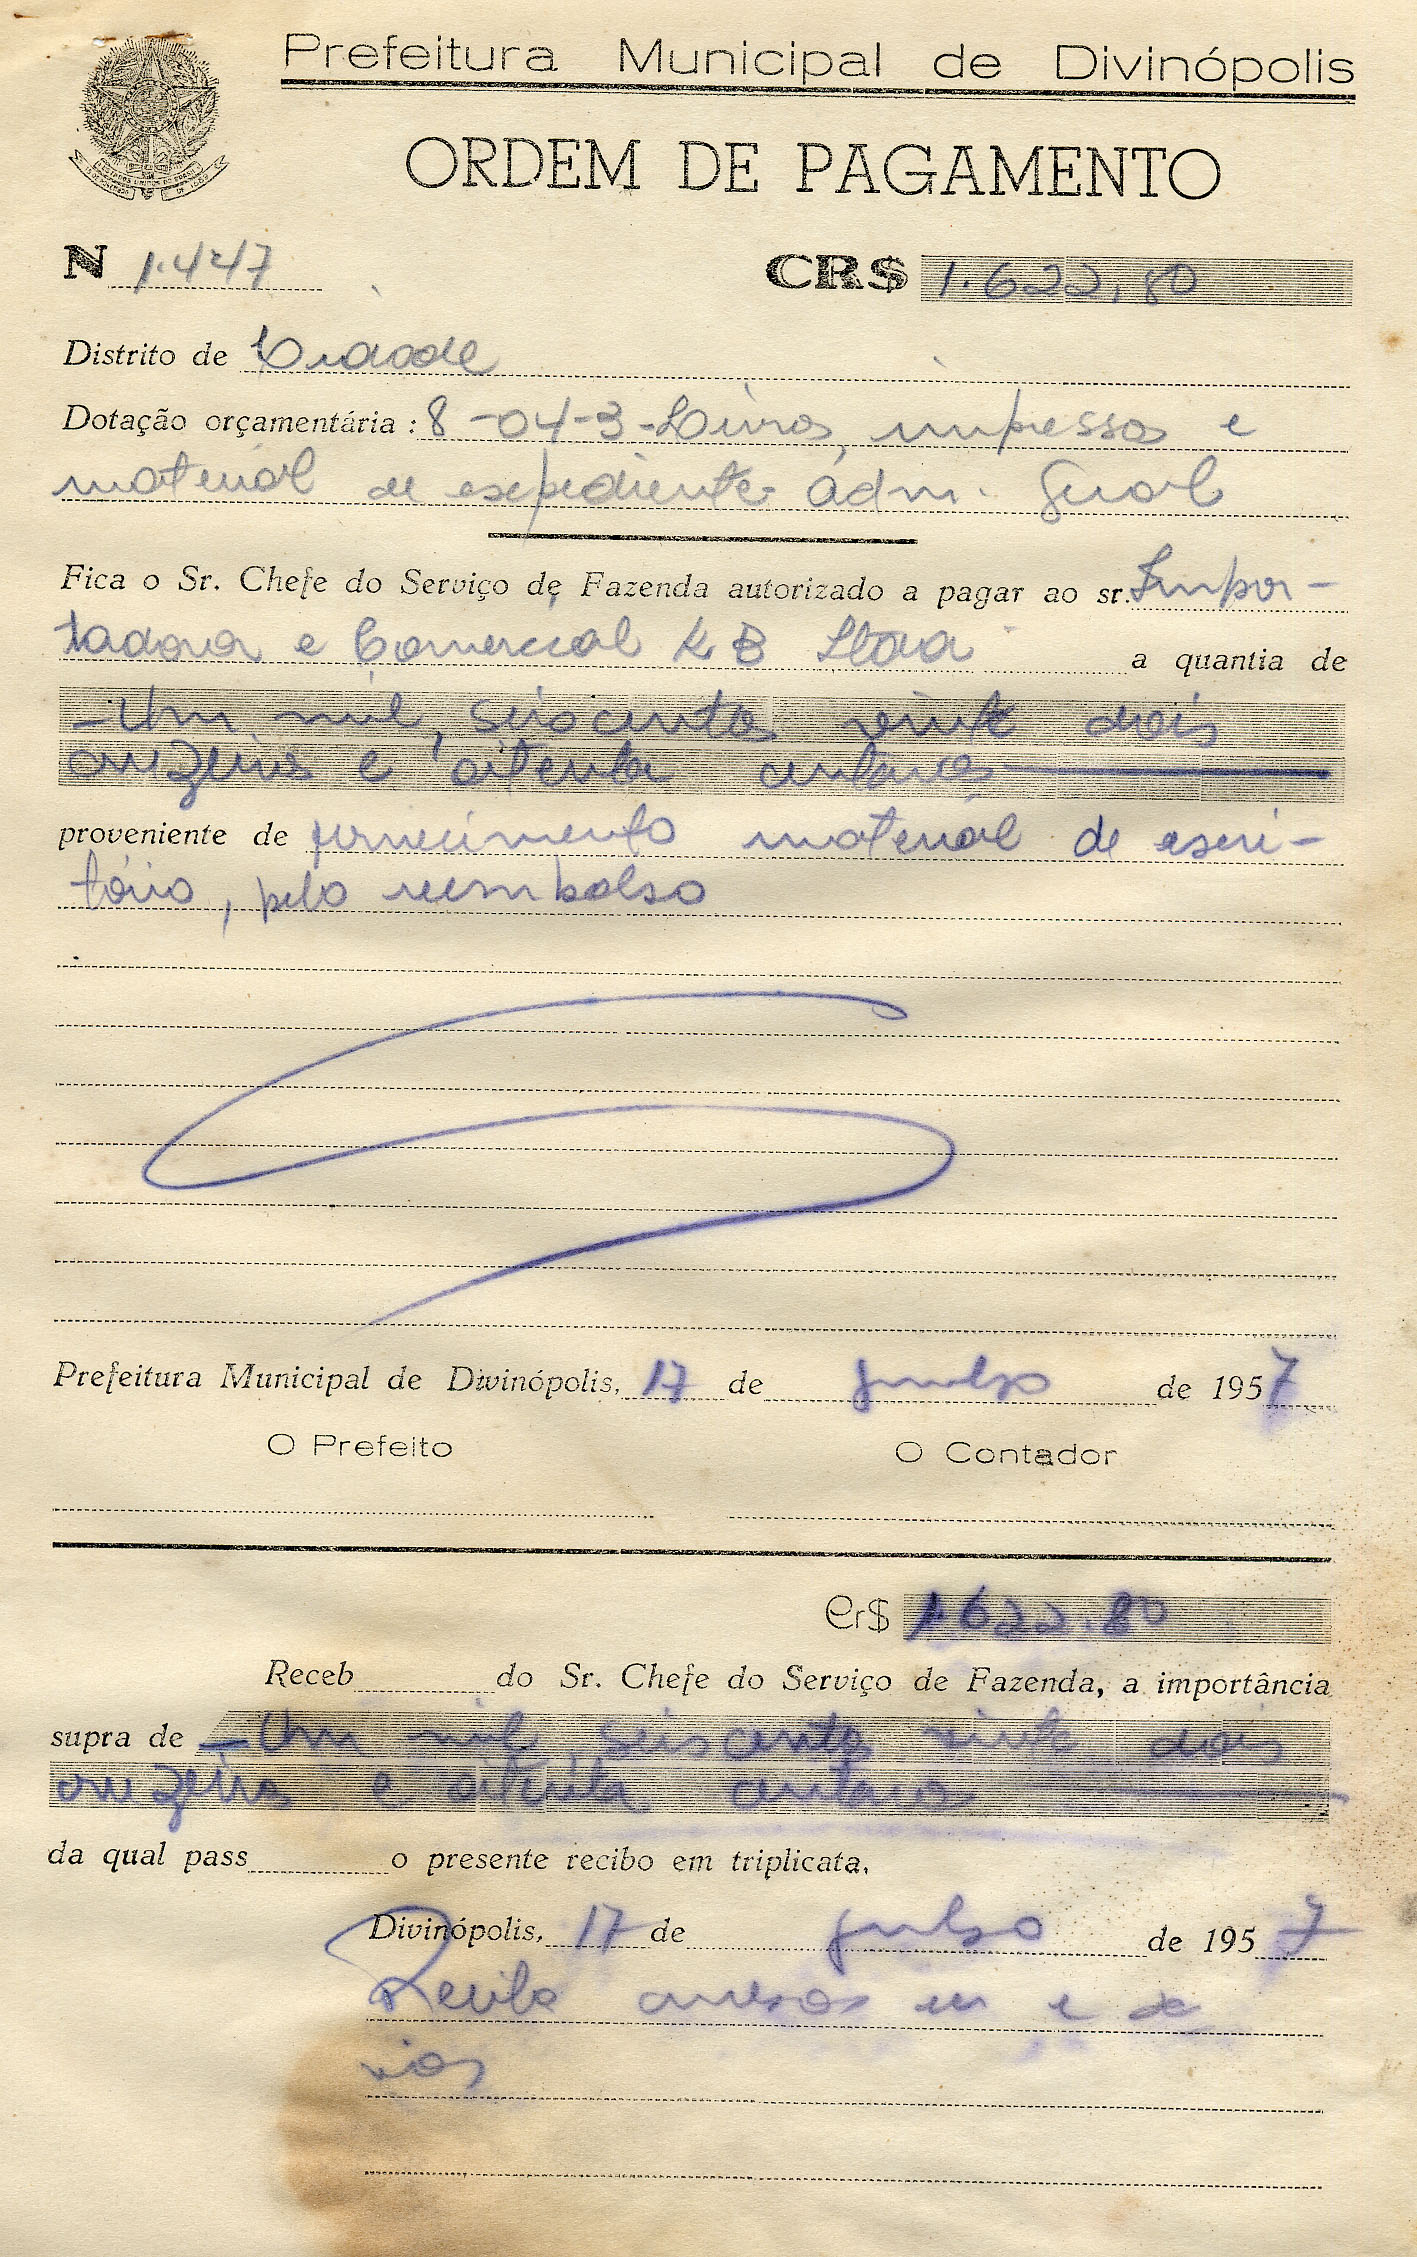 Prefeitura Municipal de Divinópolis
ORDEM DE PAGAMENTO
N 1.447 CR$ 1.622,80
Distrito de Cidade
Dotação orçamentária: 8-04-3-Livros, impressos e
material de expediente Adm. Geral
Fica o Sr. Chefe do Serviço de Fazenda autorizado a pagar ao sr. Impor-
tadora e Comercial K B Ltda a quantia de
- Um mil, seiscentos vinte dois
cruzeiros e oitenta centavos
proveniente de fornecimento material de escri-
tório, pelo reembolso
Prefeitura Municipal de Divinópolis, 17 de julho de 1957
O Prefeito O Contador
Cr$ 1.622.80
Receb do Sr. Chefe do Serviço de Fazenda, a importância
supra de - Um mil, seiscentos vinte dois
cruzeiros e oitenta centavos
da qual pass o presente recibo em triplicata.
Divinópolis, 17 de julho de 1957